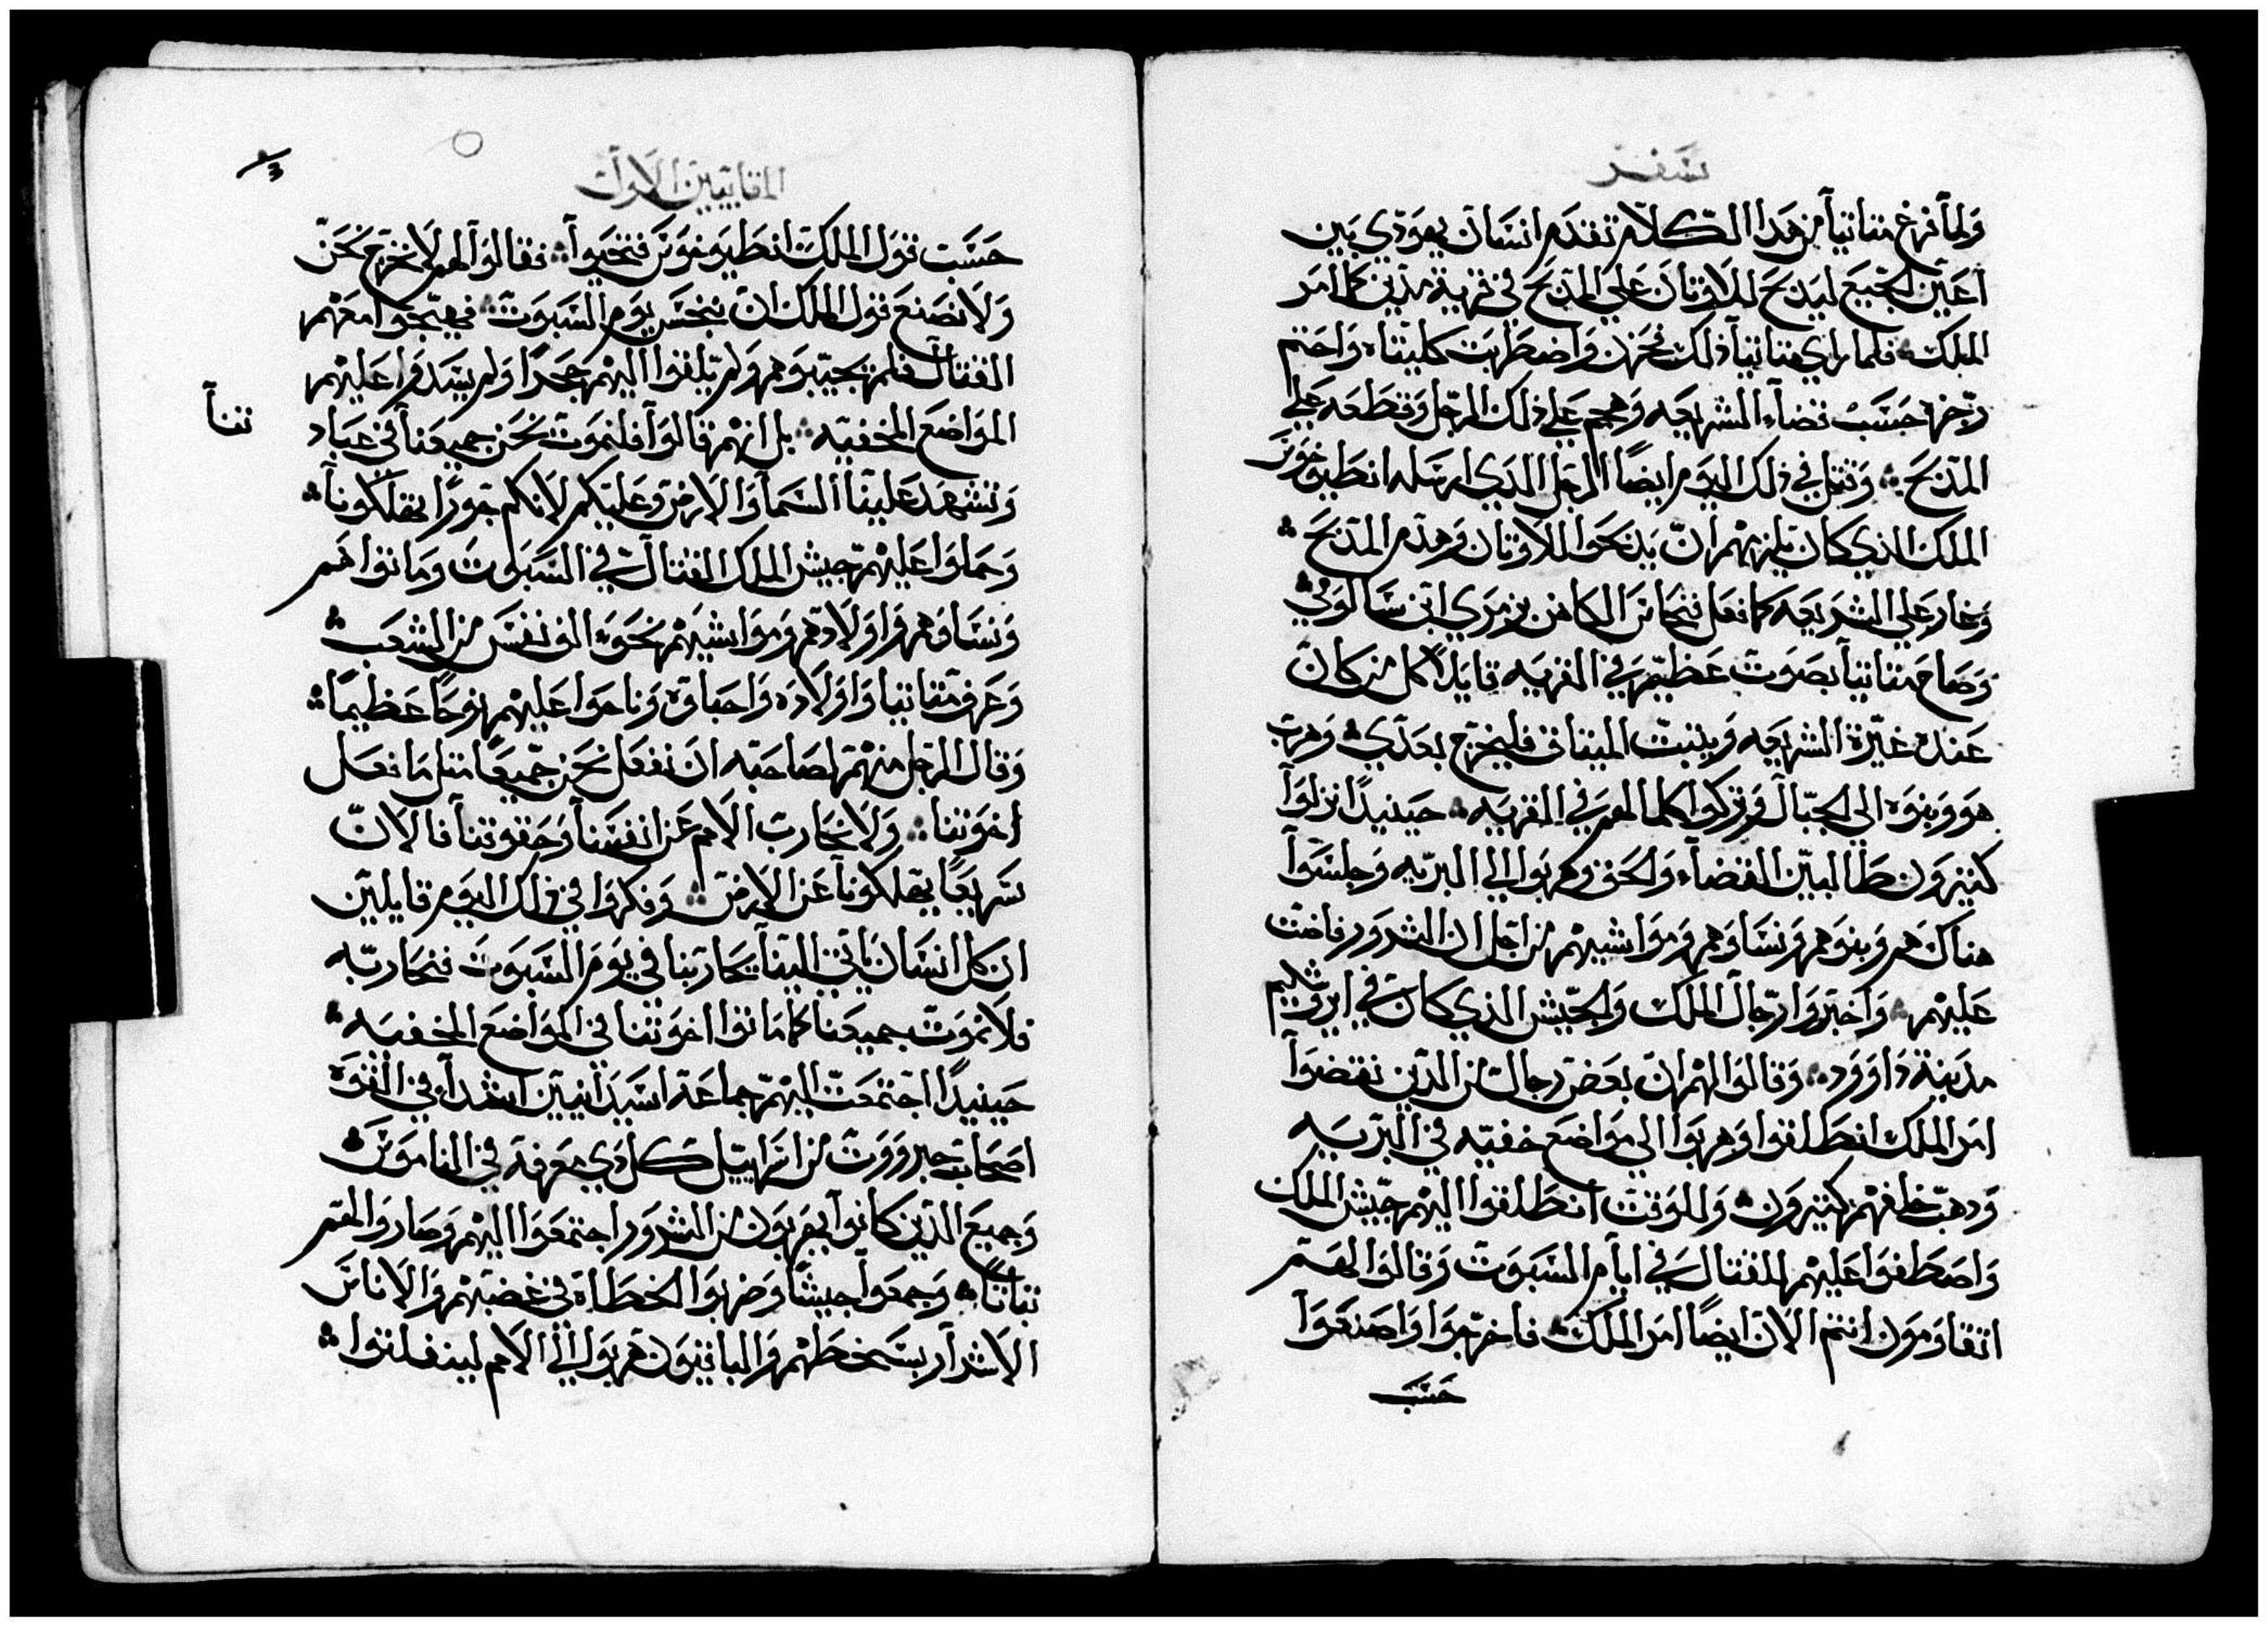 سفر
ولما فرغ متاتيا من هدا الكلام تقدم انسان يهودي بين
اعين الجميع ليدبح للاوتان على المدبح في قرية مدين كما امر
الملك فلما راي متاتيا ذلك فحزن واضطربت كليتاه واحتم
رجزه حسب قضاء الشريعه وهجم علي ذلك الرجل وقطعه علي
المدبح وقتل في ذلك اليوم ايضاً الرجل الدي ارسله انطيوخوس
الملك الذي كان يلزمهم ان يدبحوا للاوتان وهدم المدبح
وغار علي الشريعه كما فعل فنحاس الكاهن بزمري ابن سالومي
وصاح متاتيا بصوت عظيم في القريه قايلاً كل من كان
عنده غيرة الشريعه ويتبت الميتاق فليخرج بعدي وهرب
هو وبنوه الي الجبال وتركوا كلما لهم في القريه حينيداً نزلوا
كتيرون طالبين القضاء والحق وهربوا الي البريه وجلسوا
هناك هم وبنوهم ونساوهم ومواشيهم من اجل ان الشرور فاضت
عليهم واخبروا رجال الملك والجيش الذي كان في ايروشليم
مدينة داوود وقالوا لهم ان بعض رجال من الدين نقضوا
امر الملك انطلقوا وهربوا الي مواضع خفيه في البريه
ودهب خلفهم كتيرون وللوقت انطلقوا اليهم جيش الملك
واصطفوا عليهم للقتال في ايام السبوت وقالوا لهم
اتقاومون انتم الان ايضاً امر الملك فاخرجوا واصنعوا
حسب
المقابيين الاول
حسب قول الملك انطيوخوس فتحيوا فقالوا لهم لا نخرج نحن
ولا نصنع قول الملك ان ننجس يوم السبوت فهيجوا معهم
القتال فلم يجيبوهم ولم يلقوا اليهم حجراً ولم يسدوا عليهم
المواضع المخفيه بل انهم قالوا فلنموت نحن جميعنا في عباد
تنا
وتشهد علينا السما والارض وعليكم لانكم جوراً تهلكونا
وحملوا عليهم جيش الملك القتال في السبوت وماتوا هم
ونساوهم واولادهم ومواشيهم نحو الف نفس من الشعب
وعرف متاتيا واولاده واحباوه وناحوا عليهم نوحاً عظيماً
وقال الرجل منهم لصاحبه ان نفعل نحن جميعاً متل ما فعل
اخوتنا ولا نحارب الامم عن انفسنا وحقوقنا فالان
سريعاً يهلكونا عن الارض وفكروا في ذلك اليوم قايلين
ان كل انسان ياتي الينا يحاربنا في يوم السبوت فنحاربه
فلا نموت جميعنا كما ماتوا اخوتنا في المواضع المخفيه
حينيداً اجتمعت اليهم جماعة اسيدانيين اشدا في القوه
اصحاب جبرووت من اسراييل كل دي معرفة في الناموس
وجميع الدين كانوا يهربون من الشرور اجتمعوا اليهم وصاروا لهم
تباتاً وجمعوا جيشاً وضربوا الخطاة في غضبهم والاناس
الاشرار بسخطهم والباقيون هربوا الي الامم ليفلتوا